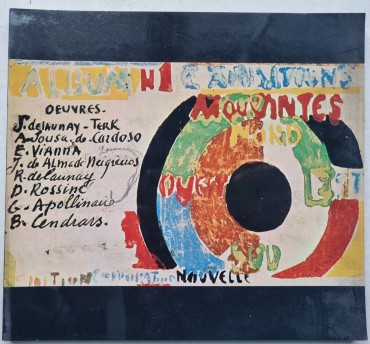 ALBUM N1 EXPOSITIONS
MOUVANTES
OEUVRES.
S. delaunay - TERK
A. Sousa. de. CARDOSO
E. VIANNA
J. de Almada Negreiros
R. delaunay
D. ROSSINÉ
G. APollinaire
B. Cendrars.
NORD
OUEST EST
SUD
NOUVELLE